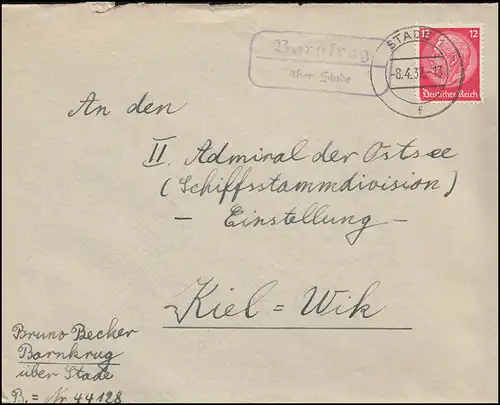 Barnkrug
über Stade
STADE
-8.4.37.-13
f
12
12
Deutsches Reich
An den
II. Admiral der Ostsee
(Schiffsstammdivision)
- Einstellung -
Kiel = Wik
Bruno Becker
Barnkrug
über Stade
B. = Nr. 44128